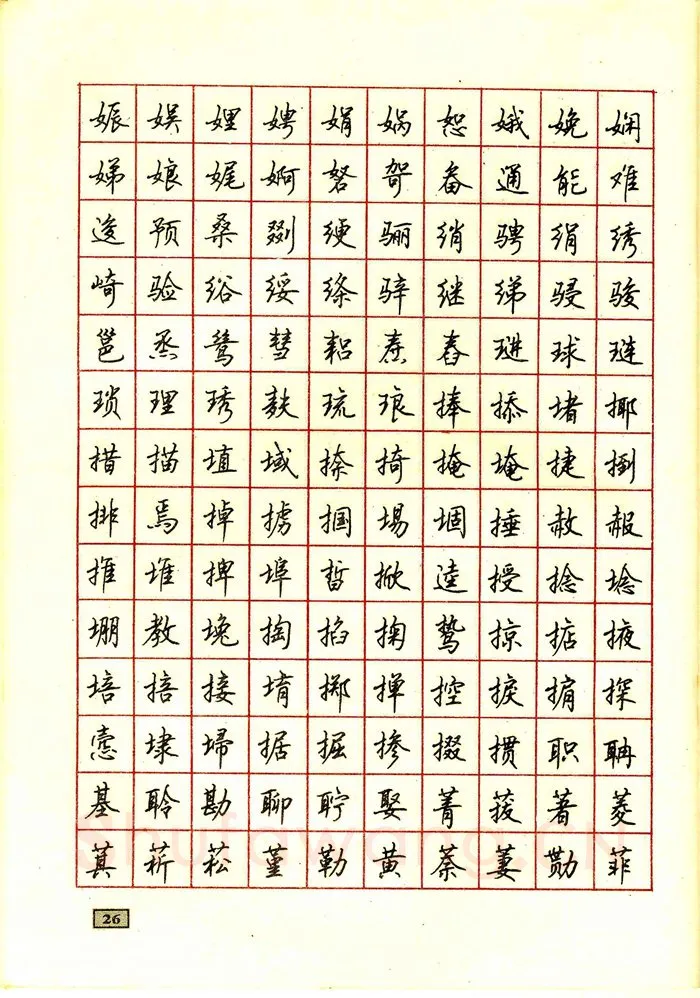 娠娱娌娉娟娲恕娥娩娴
娣娘娓婀砮哿畚通能难
逡预桑剟绠骊绡骋绢绣
崎验绤绥绦骍继绨骎骏
邕烝鸶彗耜焘舂琎球琏
琐理琇麸琉琅捧掭堵揶
措描埴域捺掎掩埯捷捯
排焉掉掳掴埸堌捶赦赧
推堆捭埠晳掀逵授捻埝
堋教堍掏掐掬鸷掠掂掖
培掊接堉掷掸控捩掮探
悫埭埽据掘掺掇掼职聃
基聆勘聊聍娶菁菝著菱
萁菥菘堇勒黄萘萋勚菲
26